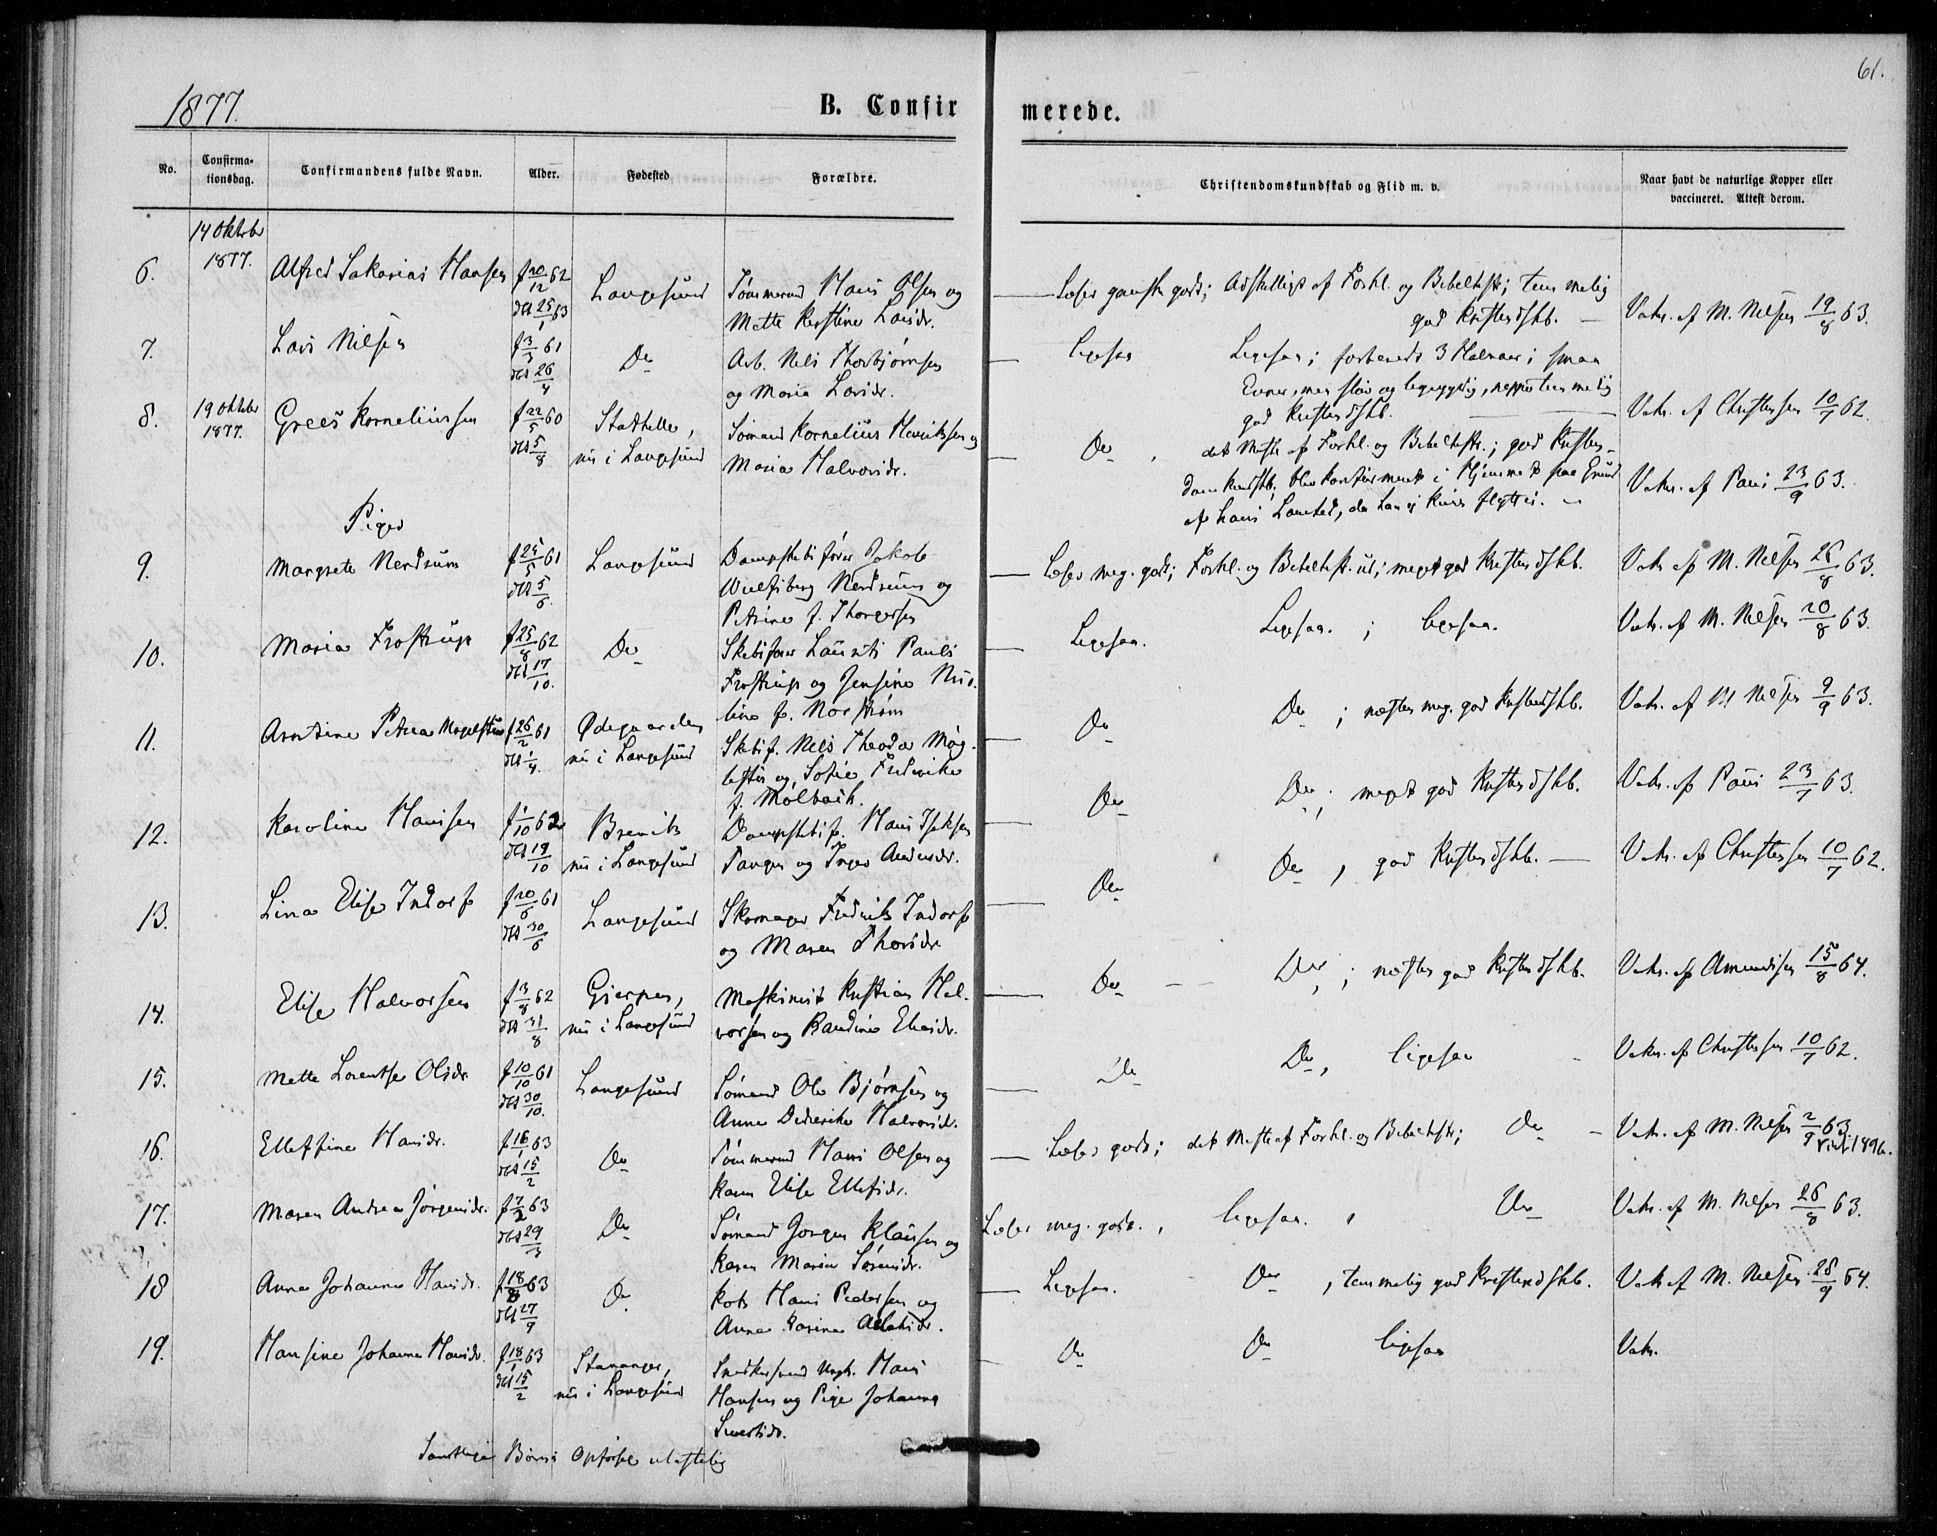 61.
1877.
B. Confir
merede.
No.
Confirma-
tionsdag.
Confirmandens fulde Navn.
Alder.
Fødested
Forældre.
Christendomskundskab og Flid m. v.
Naar havt de naturlige Kopper eller
vaccineret. Attest derom.
14 Oktober
1877.
6.
Alfred Sakarias Hansen
f 20/12 62
dbt 25/1 63
Langesund
Tømmermd Hans Olsen og
Mette Kerstine Larsdr.
Læser ganske godt; Adskilligt af Forkl. og Bibelhist; temmelig
god Kristendskb.
Vakc. af M. Nilsen 19/8 63.
7.
Lars Nilsen
f 3/3 61
dbt 26/4
Do
Arb. Nils Thorbjørnsen
og Maria Larsdr.
ligesaa
Ligesaa; forberedt 3 Halvaar; smaa
Evner, men sløv og ligegyldig, neppe temmelig
god Kristendskb.
Vakc. af Christensen 10/7 62.
8.
19 Oktober
1877.
Grees Korneliussen
f 22/5 60
dbt 5/8
Stathelle,
nu i Langesund
Sømand Kornelius Henriksen og
Maria Halvorsdr.
Do
det Meste af Forkl. og Bibelhist.; god Kristen-
domskundskb, blev konfirmeret i Hjemmet paa Grund
af hans Lamhed, da han ej kunde flyttes.
Vakc. af Paus 23/9 63.
Piger
9.
Margrete Nerdrum
f 25/5 61
dbt 5/6.
Langesund
Dampskibsfører Jakob
Wulfsberg Nerdrum og
Petrine f. Thorgersen
Læser meg. godt; Forkl. og Bibelhist. ud; meget god Kristendskb.
Vakc af M. Nilsen 26/8 63.
10.
Maria Frostrup
f 25/8 62
dbt 17/10.
Do
Skibsfører Laurits Pauls
Frostrup og Jensine Niko-
line f. Norstrøm
Ligesaa.
Ligesaa. ; ligesaa.
Vakc. af M. Nilsen 20/8 63.
11.
Arntine Petrea Møglestue
f 26/2 61
dbt 1/4.
Ødegaarden
nu i Langesund
Skibsf. Nils Theodor Møg-
lestue og Sofie Frederike
f. Mølbach.
Do
Do ; næsten meg. god Kristendskb.
Vakc. af M Nilsen 9/9 63.
12.
Karoline Hansen
f 1/10 62
dbt 19/10
Brevik
nu i Langesund
Dampskibsf. Hans Isaksen
Tangen og Inger Andersdr.
Do
Do ; meget god Kristendskb.
Vakc. af Paus 23/7 63.
13.
Lina Elise Indorf
f 20/6 61
dbt 30/6
Langesund
Skomager Fredrik Indorf
og Maren Thorsdr
Do
Do , god Kristendskb.
Vakc. af Christensen 10/7 62.
14.
Elise Halvorsen
f 3/8 62
dbt 31/8
Gjerpen,
nu i Langesund
Maskinist Kristian Hal-
vorsen og Randine Eliasdr.
Do
Do ; næsten god Kristendskb.
Vakc. af Amundsen 15/8 64.
15.
Mette Lorentse Olsdr
f 10/10 61
dbt 30/10.
Langesund
Sømand Ole Bjørnsen og
Anne Dederike Halvorsd.
Do
Do , ligesaa
Vakc. af Christensen 10/7 62.
16.
Elleffine Hansdr.
f 16/1 63
dbt 15/2
Do
Tømmermd Hans Olsen og
Karen Elise Ellefsdr.
Læser godt; det Meste af Forkl. og Bibelhist; Do
Vakc. af M. Nilsen 2/9 63
17.
Maren Andrea Jørgensdr.
f 7/2 63
dbt 29/3
Do
Sømand Jørgen Klausen og
Karen Maria Sørensdr.
Læser meg. godt. , ligesaa. , Do
Vakc. af M. Nilsen 26/8 63.
18
Anne Johanne Hansdr.
f 18/8 63
dbt 27/9
Do
Kok Hans Pedersen og
Anne Karine Aslaksdr.
Ligesaa.
Do , temmelig god Kristendskb.
Vakc af M. Nilsen 28/9 64.
19.
Hansine Johanne Hansdr.
f 18/1 63
dbt 15/2
Stavanger,
nu i Langesund
Snedkersvend Ungk. Hans
Hansen og Pige Johanna
Sivertsdr.
Do
Do ligesaa
Vakc.
Samtlige Børns Opførsel ulastelig